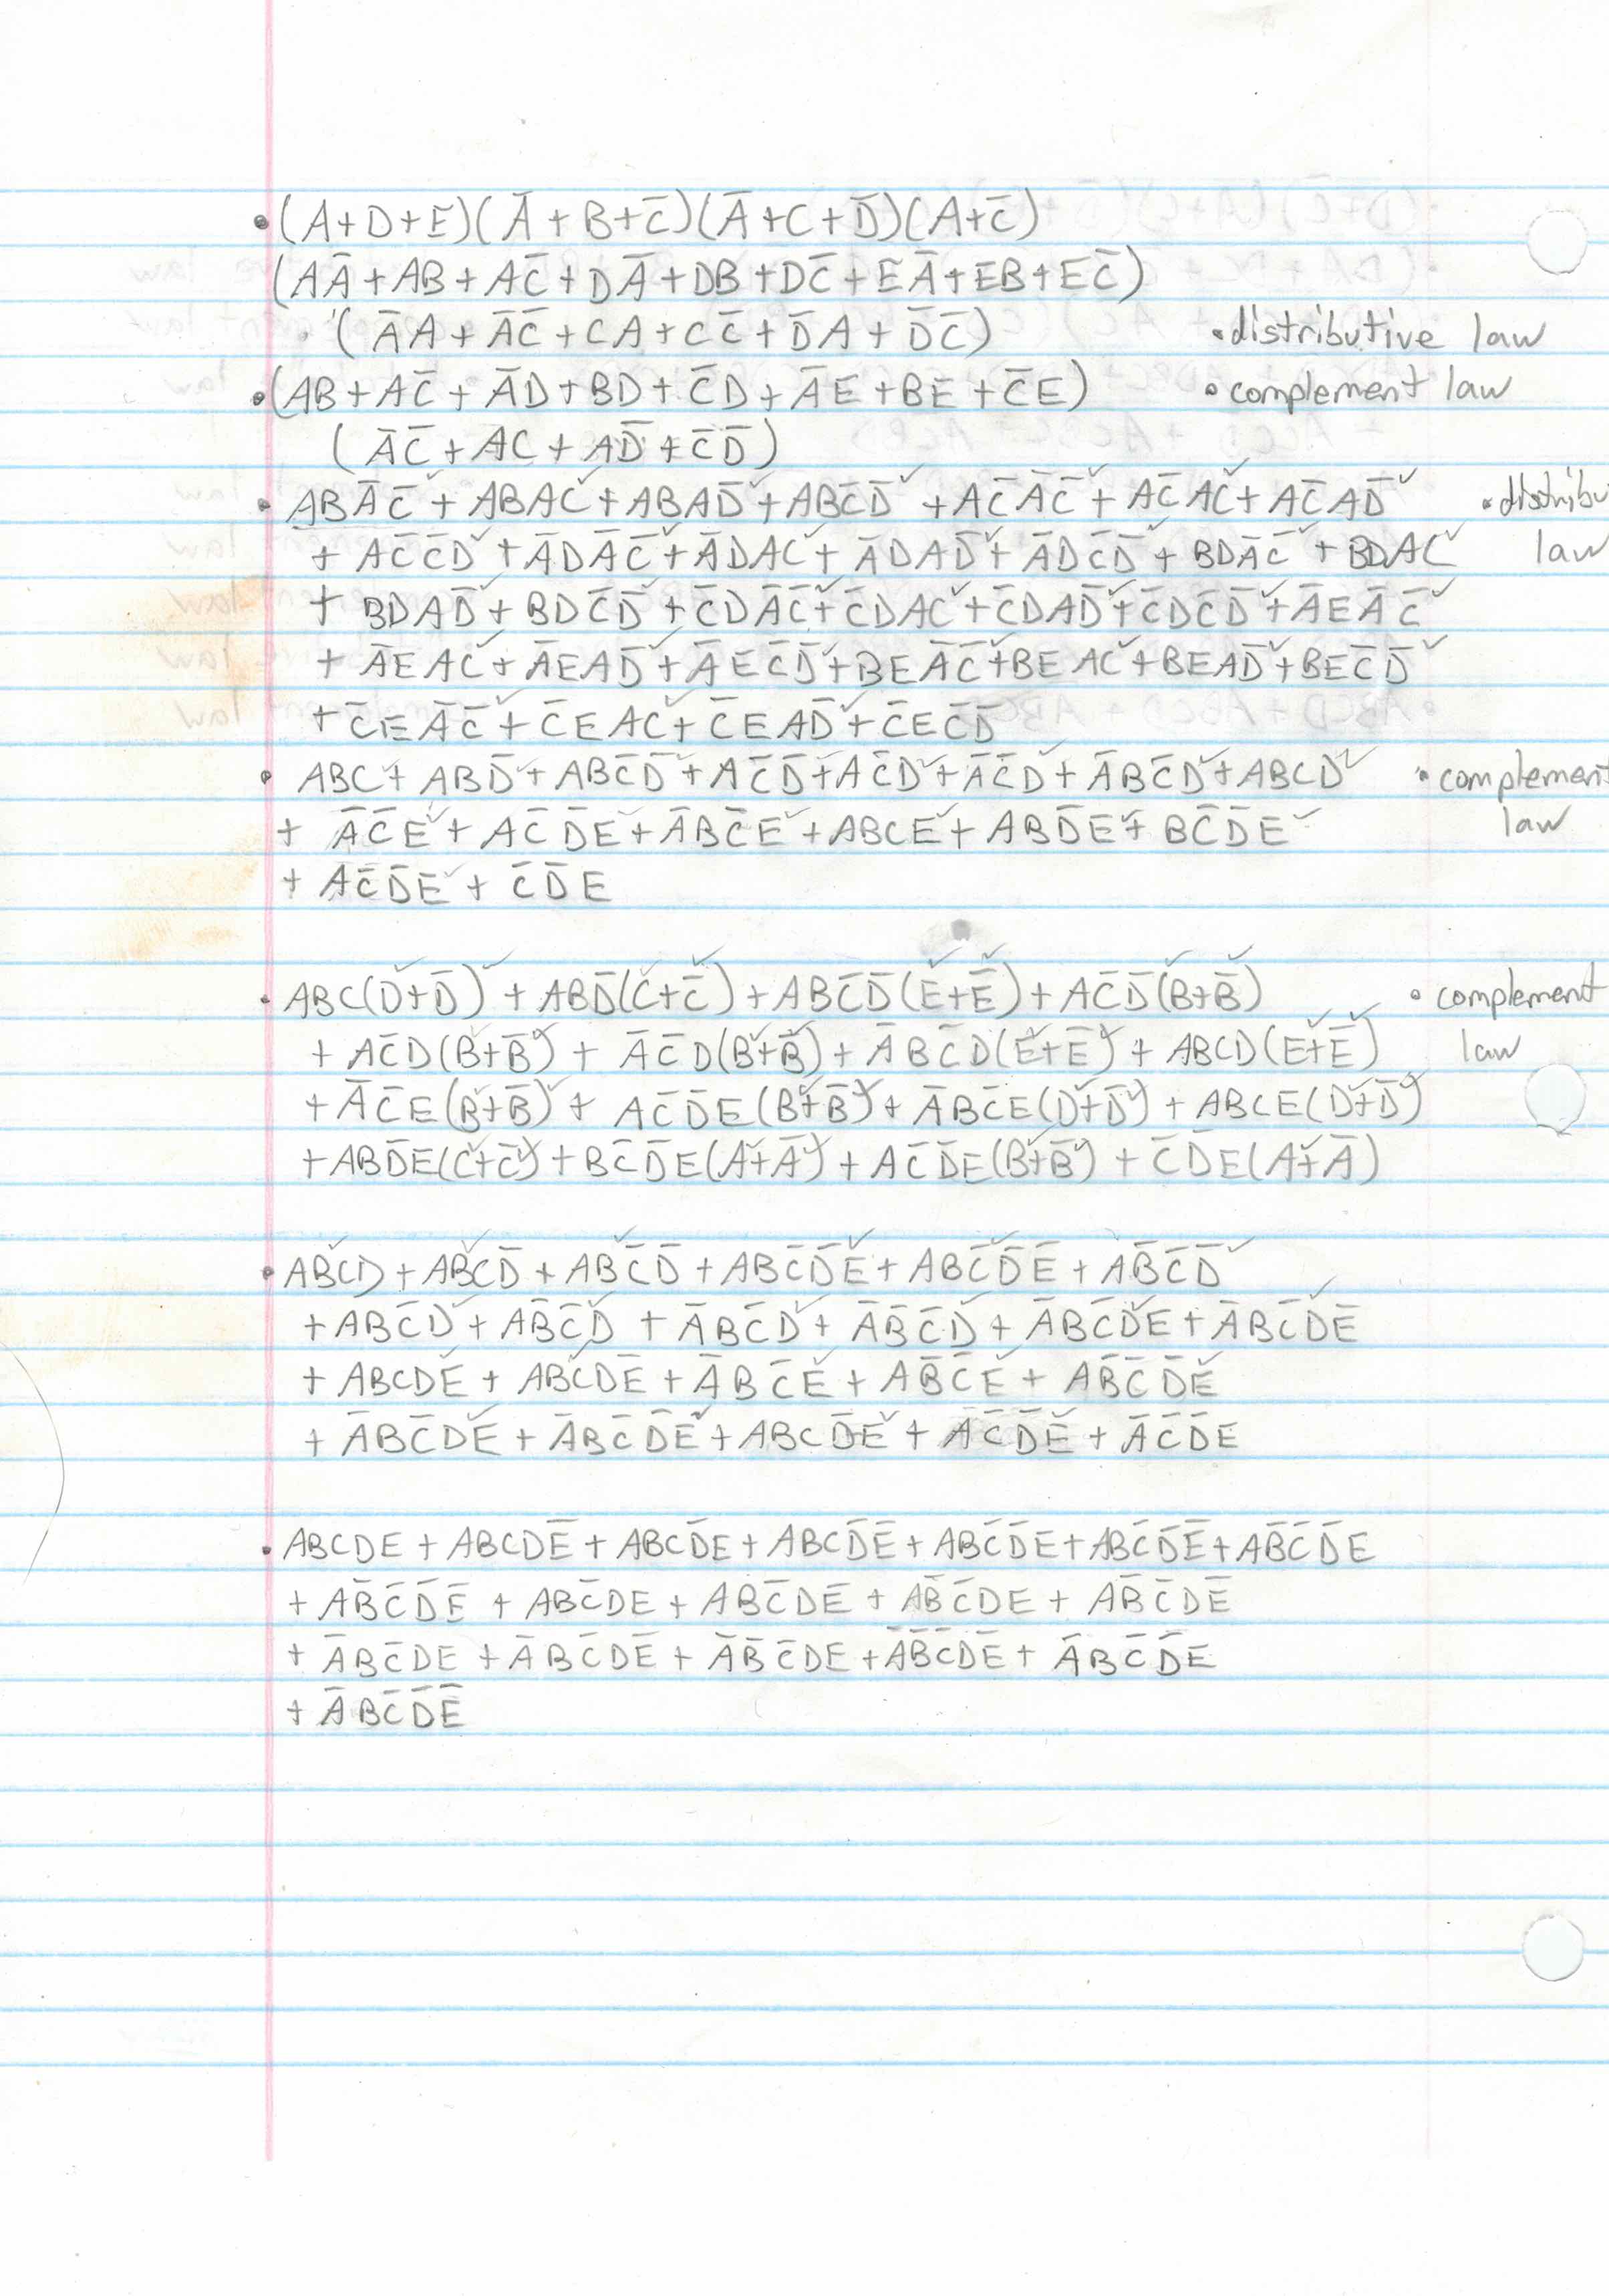 •(A+D+E)(A̅+B+C̅)(A̅+C+D̅)(A+C̅)
(AA̅+AB+AC̅+DA̅+DB+DC̅+EA̅+EB+EC̅)
(A̅A+A̅C̅+CA+CC̅+D̅A+D̅C̅) •distributive law
•(AB+AC̅+A̅D+BD+C̅D+A̅E+BE+C̅E) •complement law
(A̅C̅+AC+AD̅+C̅D̅)
•ABA̅C̅+ABAC+ABAD̅+ABC̅D̅+AC̅A̅C̅+AC̅AC+AC̅AD̅ •distribu
+AC̅C̅D̅+A̅DA̅C̅+A̅DAC+A̅DAD̅+A̅DC̅D̅+BDA̅C̅+BDAC law
+BDAD̅+BDC̅D̅+C̅DA̅C̅+C̅DAC+C̅DAD̅+C̅DC̅D̅+A̅EA̅C̅
+A̅EAC+A̅EAD̅+A̅EC̅D̅+BEA̅C̅+BEAC+BEAD̅+BEC̅D̅
+C̅EA̅C̅+C̅EAC+C̅EAD̅+C̅EC̅D̅
•ABC+ABD̅+ABC̅D̅+AC̅D̅+AC̅D+A̅C̅D+A̅BC̅D+ABCD •complement
+A̅C̅E+AC̅D̅E+A̅BC̅E+ABCE+ABD̅E+BC̅D̅E law
+AC̅D̅E+C̅D̅E
•ABC(D+D̅)+ABD̅(C+C̅)+ABC̅D̅(E+E̅)+AC̅D̅(B+B̅) •complement
+AC̅D(B+B̅)+A̅C̅D(B+B̅)+A̅BC̅D(E+E̅)+ABCD(E+E̅) law
+A̅C̅E(B+B̅)+AC̅D̅E(B+B̅)+A̅BC̅E(D+D̅)+ABCE(D+D̅)
+ABD̅E(C+C̅)+BC̅D̅E(A+A̅)+AC̅D̅E(B+B̅)+C̅D̅E(A+A̅)
•ABCD+ABCD̅+ABC̅D̅+ABC̅D̅E+ABC̅D̅E̅+AB̅C̅D̅
+ABC̅D+AB̅C̅D+A̅BC̅D+A̅B̅C̅D+A̅BC̅DE+A̅BC̅DE̅
+ABCDE+ABCDE̅+A̅BC̅E+A̅B̅C̅E+AB̅C̅D̅E
+A̅BC̅DE+A̅BC̅D̅E+ABCD̅E+AC̅D̅E+A̅C̅D̅E
•ABCDE+ABCDE̅+ABCD̅E+ABCD̅E̅+ABC̅D̅E+ABC̅D̅E̅+AB̅C̅D̅E
+AB̅C̅D̅E̅+ABC̅DE+ABC̅DE̅+AB̅C̅DE+AB̅C̅DE̅
+A̅BC̅DE+A̅BC̅DE̅+A̅B̅C̅DE+A̅B̅C̅DE̅+A̅BC̅D̅E
+A̅BC̅D̅E̅